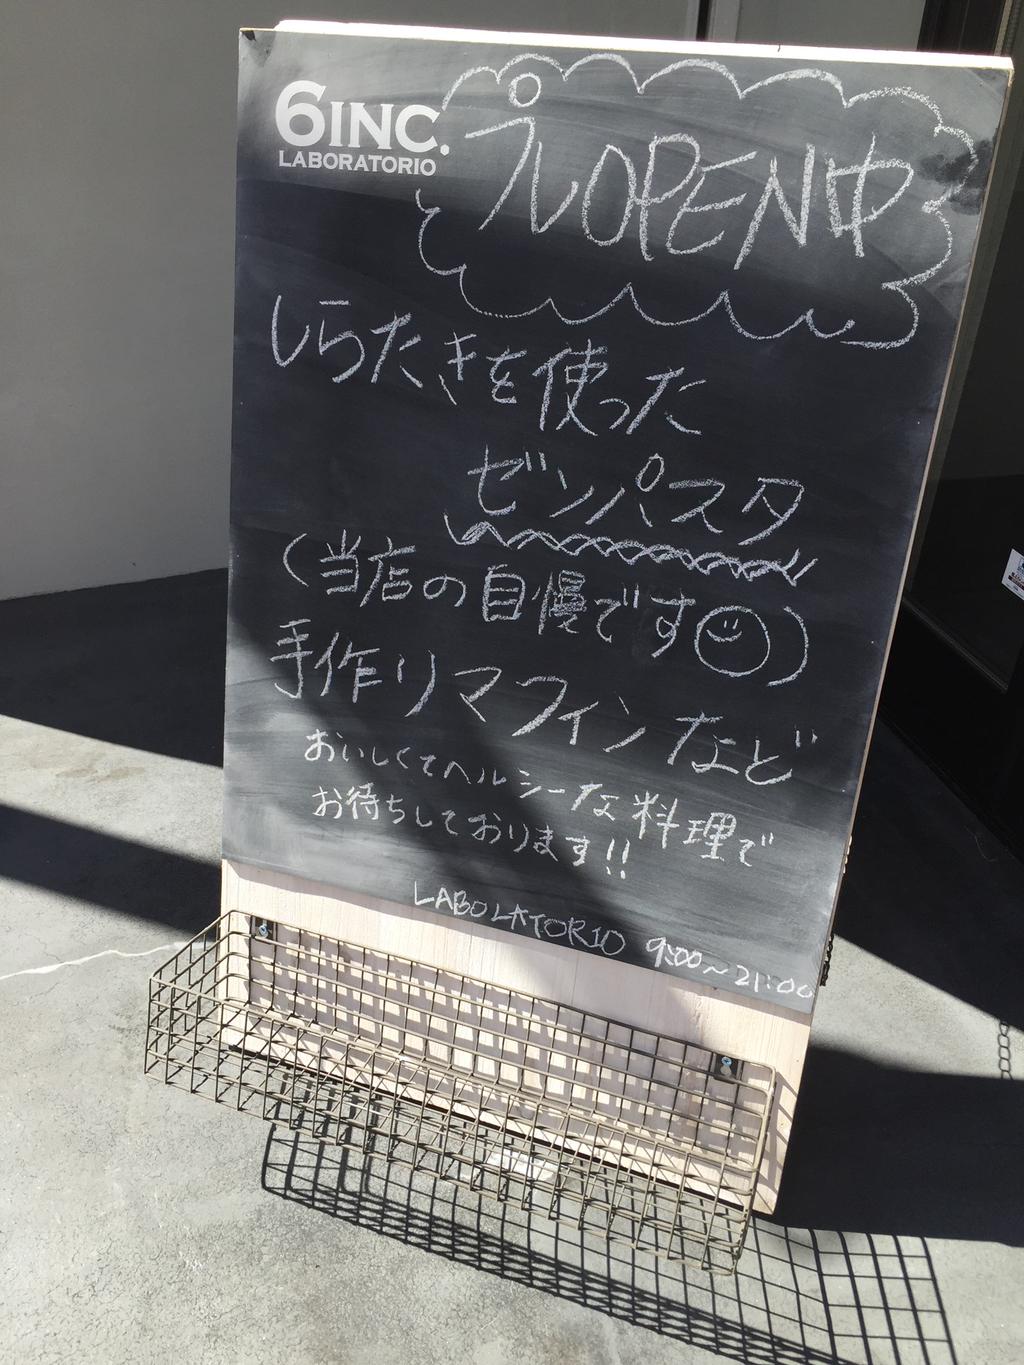 6INC.
LABORATORIO
プレOPEN中
しらたきを使った
ゼンパスタ
(当店の自慢です)
手作りマフィンなど
おいしくてヘルシーな料理で
お待ちしております!!
LABOLATORIO 9:00〜21:00